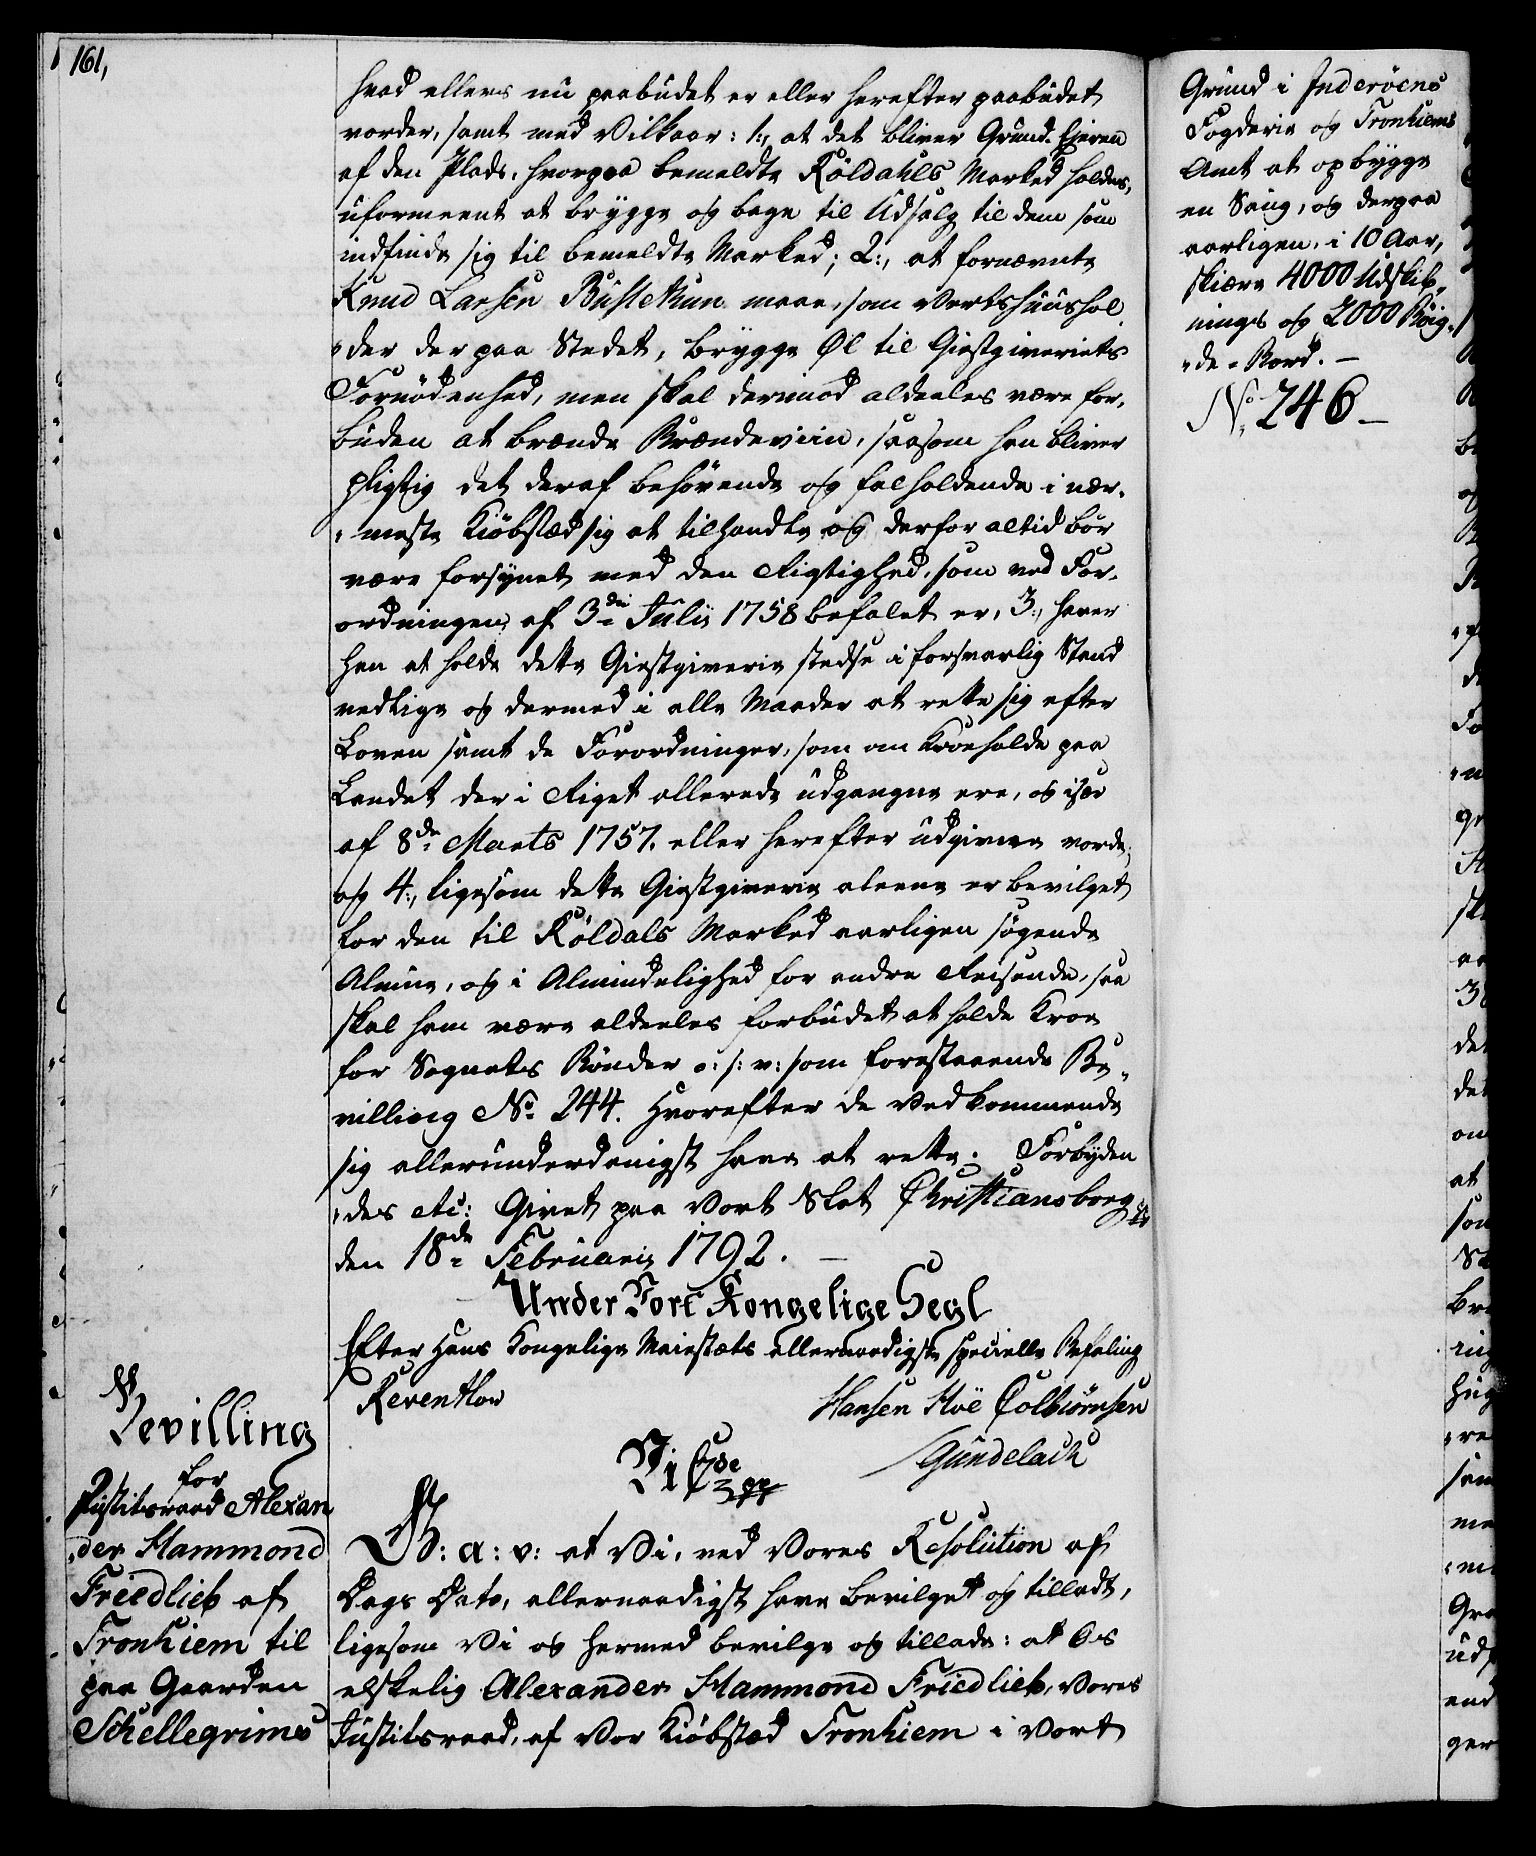 161,
hvad ellers nu paabüdet er eller herefter paabüdet
vorder, samt med Vilkaar: 1:, at det bliver Grund-Ejeren
af den Plads, hvorpaa bemeldte Röldahls Marked holdes,
uformeent at brygge og bage til Udsalg til dem som
indfinde sig til bemeldte Marked; 2:, at fornævnte
Knud Larsen Bustetun maae, som Vertshüushol„
„der der paa Stedet, brygge Øl til Giestgiveriets
Fornödenhed, men skal derimod aldeeles være for„
büden at brænde Brændeviin, saasom han bliver
pligtig det deraf behövende og falholdende i nær„
„meste Kiöbstæd sig at tilhandle og derfor altid bör
være forsÿnet med den Rigtighed, som ved For„
ordningen af 3die Julii 1758 befalet er, 3:, haver
han at holde dette Giestgiverie stedse i forsvarlig Stand
vedlige og dermed i alle Maader at rette sig efter
Loven samt de Forordninger, som om Kroeholde paa
Landet der i Riget allerede üdgangne ere, og især
af 8de Marts 1757. eller herefter üdgivne vorde,
og 4:, ligesom dette Giestgiverie aleene er bevilget
for den til Röldals Marked aarligen søgende
Almue, og i Almindelighed for andre Reisende, saa
skal ham være aldeeles forbüdet at holde Kroe
for Sognets Bönder o: s: v: som forestaaende Be„
villing No 244. Hvorefter de Vedkommende
sig alleründerdanigst have at rette. Forbÿden
„des etc: Givet paa Vort Slot Christiansborg
den 18de Februarii 1792. —
Under Vort Kongelige Segl
Efter Hans Kongelige Maiestæts allernaadigste specielle Befaling
Reventlow
Hansen Hoë Colbiørnsen
Gundelach
Bevilling
for
Justitsraad Alexan
„der Hammond
Friedlieb af
Tronhiem til
paa Gaarden
Schellegrims
Vi C 7de
G: a: v: at Vi, ved Vores Resolution af
Dags Dato, allernaadigst have bevilget og tilladt,
ligesom Vi og hermed bevilge og tillade: at Os
elskelig Alexander Hammond Friedlieb, Vores
Justitsraad, af Vor Kiöbstæd Tronhiem i Vort
Grund i Inderöens
Fogderie og Tronhiems
Amt at opbÿgge
en Saug, og derpaa
aarligen, i 10 Aar,
skiære 4000 Udskib„
nings og 2000 Bÿig„
„de-Bord. —
No 246 —